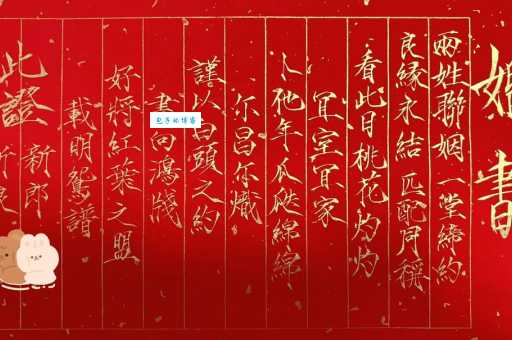 婚書
兩姓聯姻一堂締約
良緣永結匹配同稱
看此日桃花灼灼
宜室宜家
卜他年瓜瓞綿綿
尔昌尔熾
謹以白頭之約
書向鴻牋
好將紅葉之盟
載明鴛譜
此證
新郎